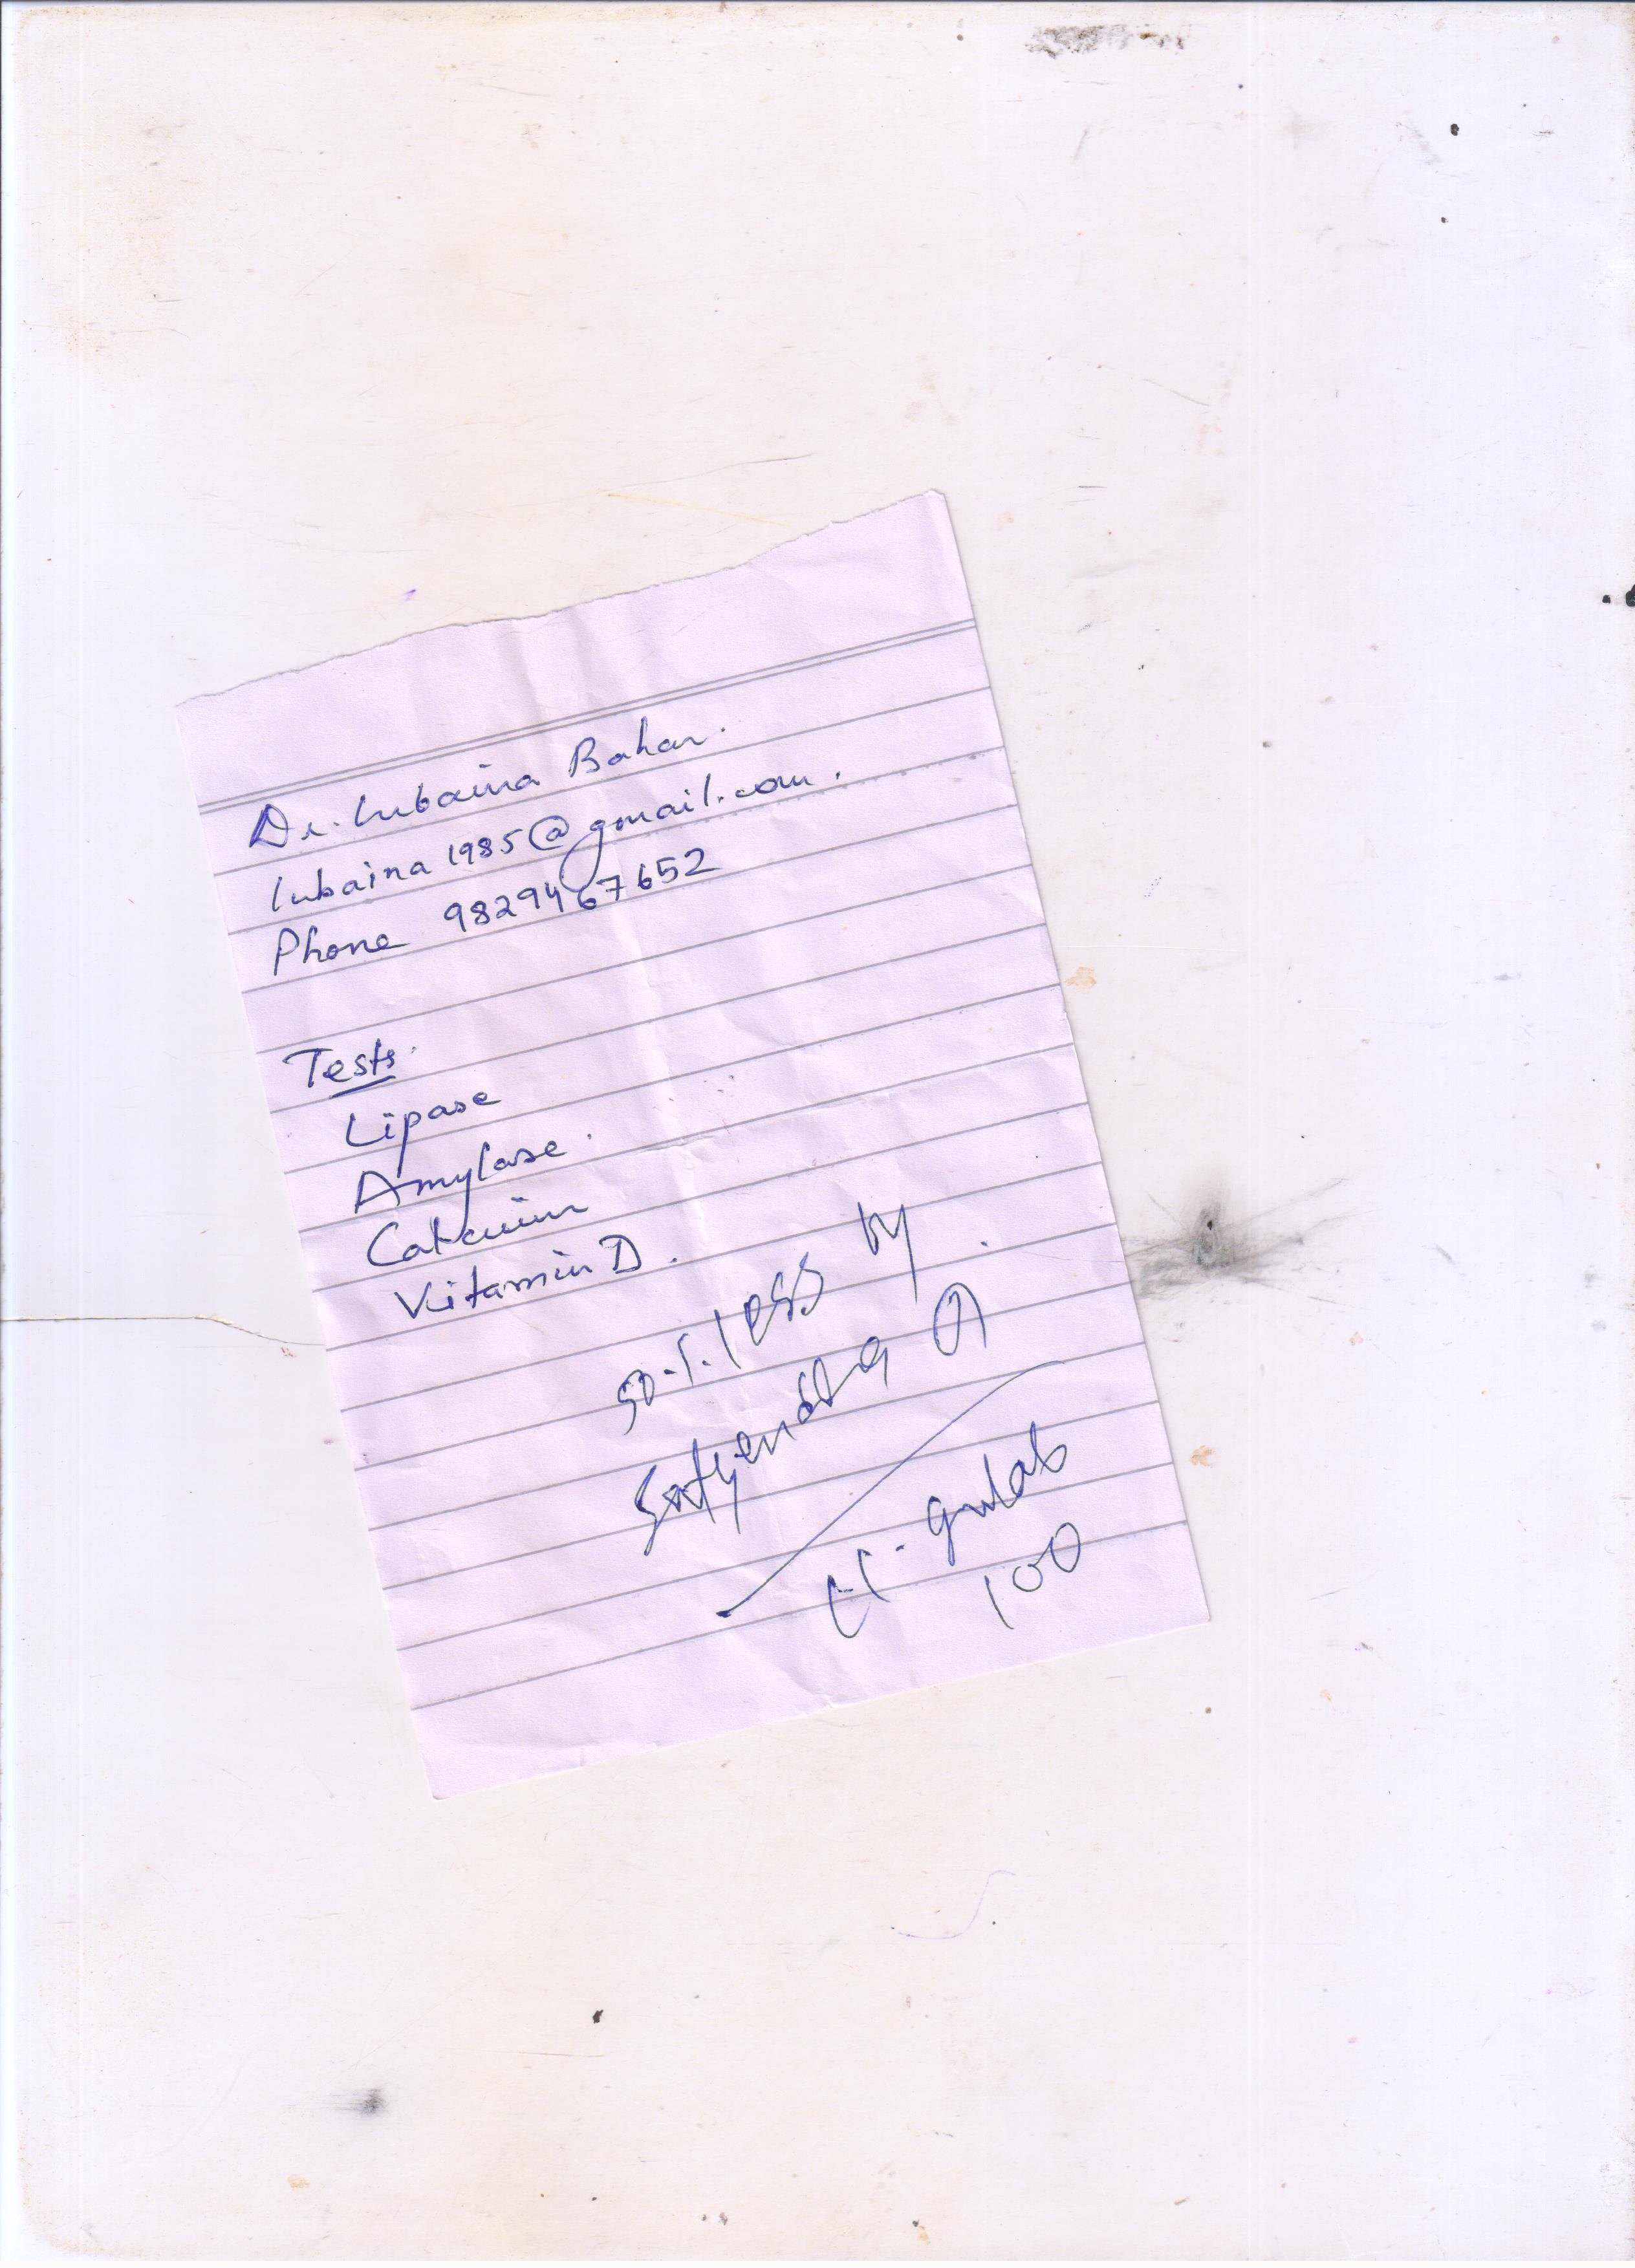 Dr. Lubaina Bahar.
lubaina1985@gmail.com.
Phone 9829467652
Tests.
Lipase
Amylase.
Calcium
Vitamin D.
50.1. less by
Satyendra
Cl. gulab
100